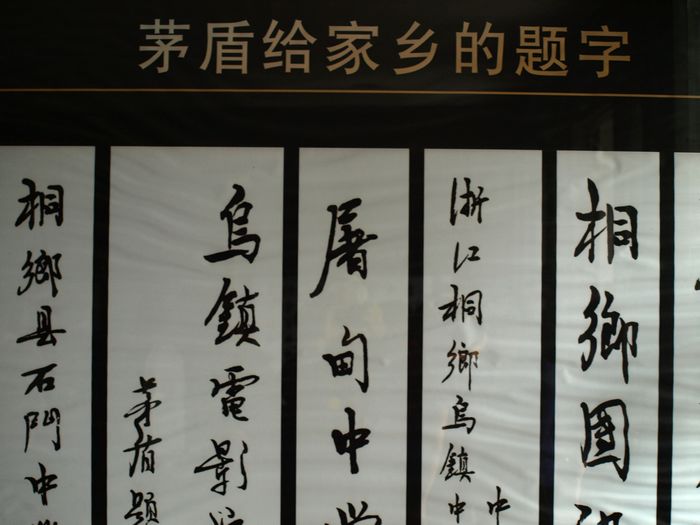 茅盾给家乡的题字
桐鄉國
中
浙江桐鄉烏鎮中
屠甸中
烏鎮電影
茅盾題
桐鄉县石門中